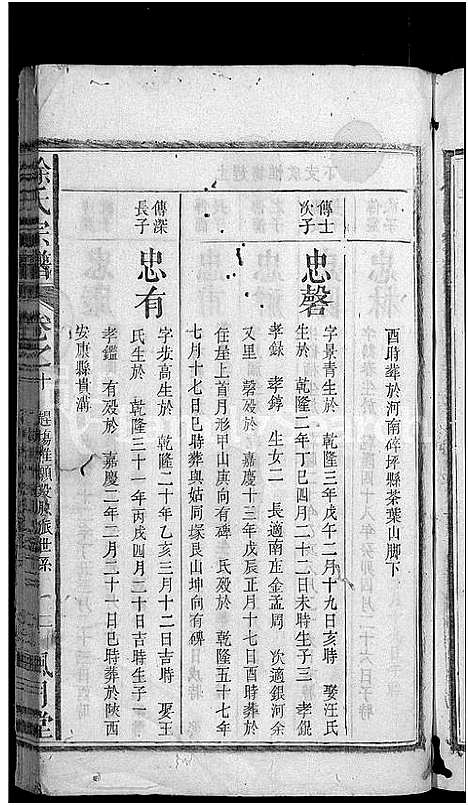 酉時葬於河南碎坪縣茶葉山脚下
傳士
次子
忠磬
字景青生於 乾隆三年戊午二月十九日亥時 娶汪氏
生於 乾隆二年丁巳四月二十二日未時生子三 孝錕
孝錄 孝錞 生女二 長適南庄金孟周 次適銀河余
又里 磬殁於 嘉慶十三年戊辰正月十七日酉時葬於
任屋上首月形甲山庚向有碑 氏殁於 乾隆五十七年
七月十七日巳時葬與姑同塚艮山坤向有碑
傳深
長子
忠有
字 高生於 乾隆二十年乙亥三月十二日吉時 娶王
氏生於 乾隆三十一年丙戌四月二十日吉時生子一
孝鑑 有殁於 嘉慶二年二月二十一日巳時葬於陝西
安康縣貴溝
徐氏宗譜
卷之十
世系